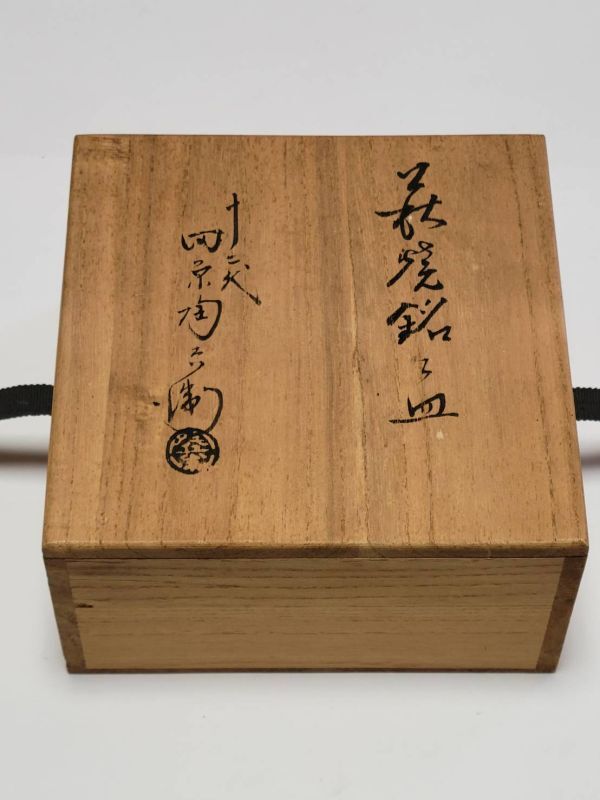 萩焼銘々皿
十二代
田原陶兵衛